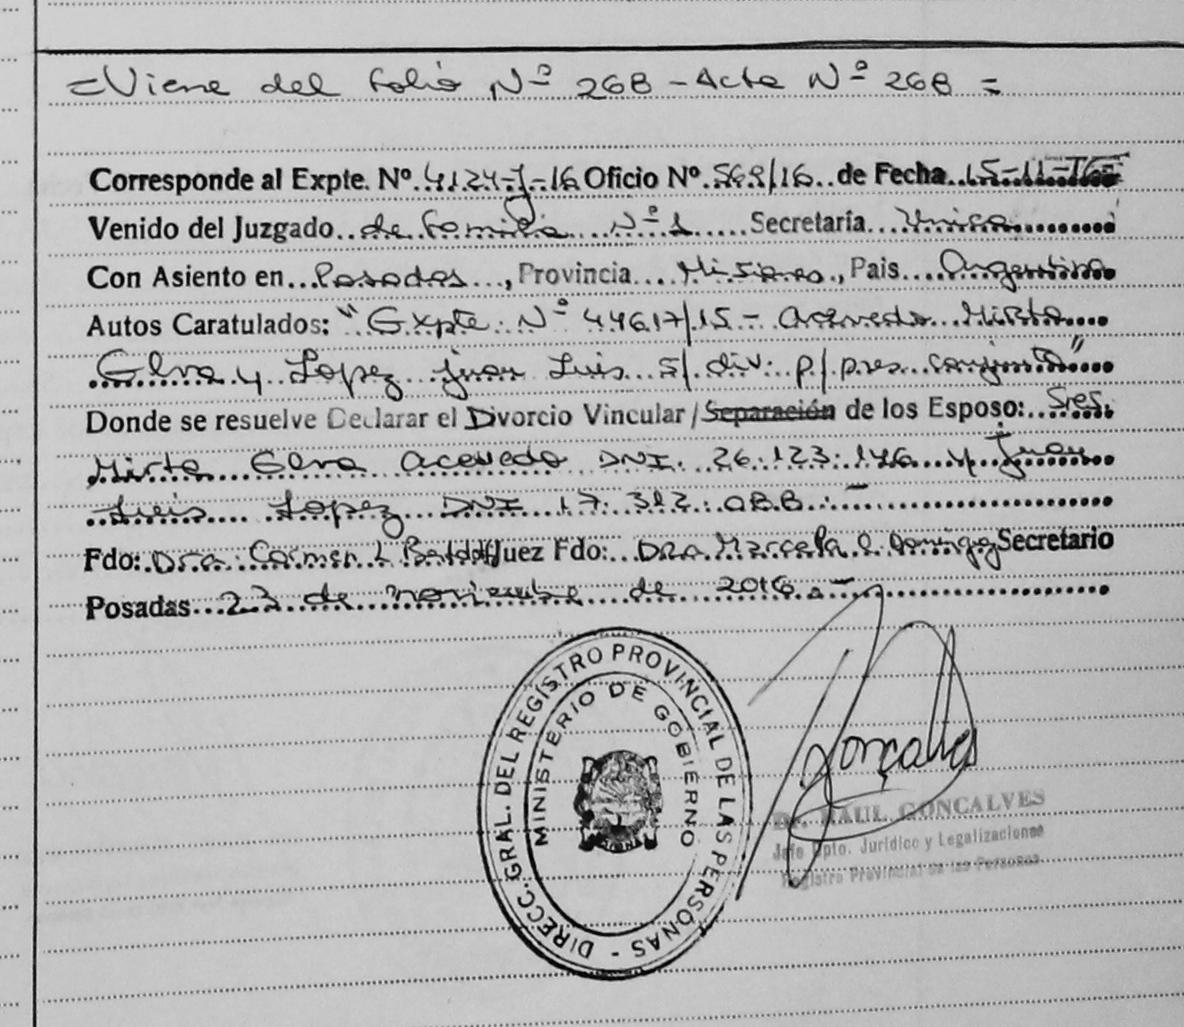 =Viene del folio Nº 268 - Acta Nº 268 =
Corresponde al Expte. Nº 4124-J-16 Oficio Nº 569/16 de Fecha 15-11-16
Venido del Juzgado de Familia Nº 1 Secretaría Unica
Con Asiento en Posadas, Provincia Misiones, Pais Argentina
Autos Caratulados: "Expte. Nº 44617/15 - Acevedo Mirta
Elva y Lopez Juan Luis s/ div. p/ pres. conjunta"
Donde se resuelve Declarar el Divorcio Vincular/Separación de los Esposo: Sres.
Mirta Elva Acevedo DNI. 26.123.146 y Juan
Luis Lopez DNI 17.312.088.-
Fdo: Dra. Carmen L. Juez Fdo: Dra. Marcela Secretario
Posadas 23 de noviembre de 2016.-
DIRECC. GRAL. DEL REGISTRO PROVINCIAL DE LAS PERSONAS -
MINISTERIO DE GOBIERNO
Gonçalves
Dr. RAUL GONCALVES
Jefe Dpto. Jurídico y Legalizaciones
Registro Provincial de las Personas